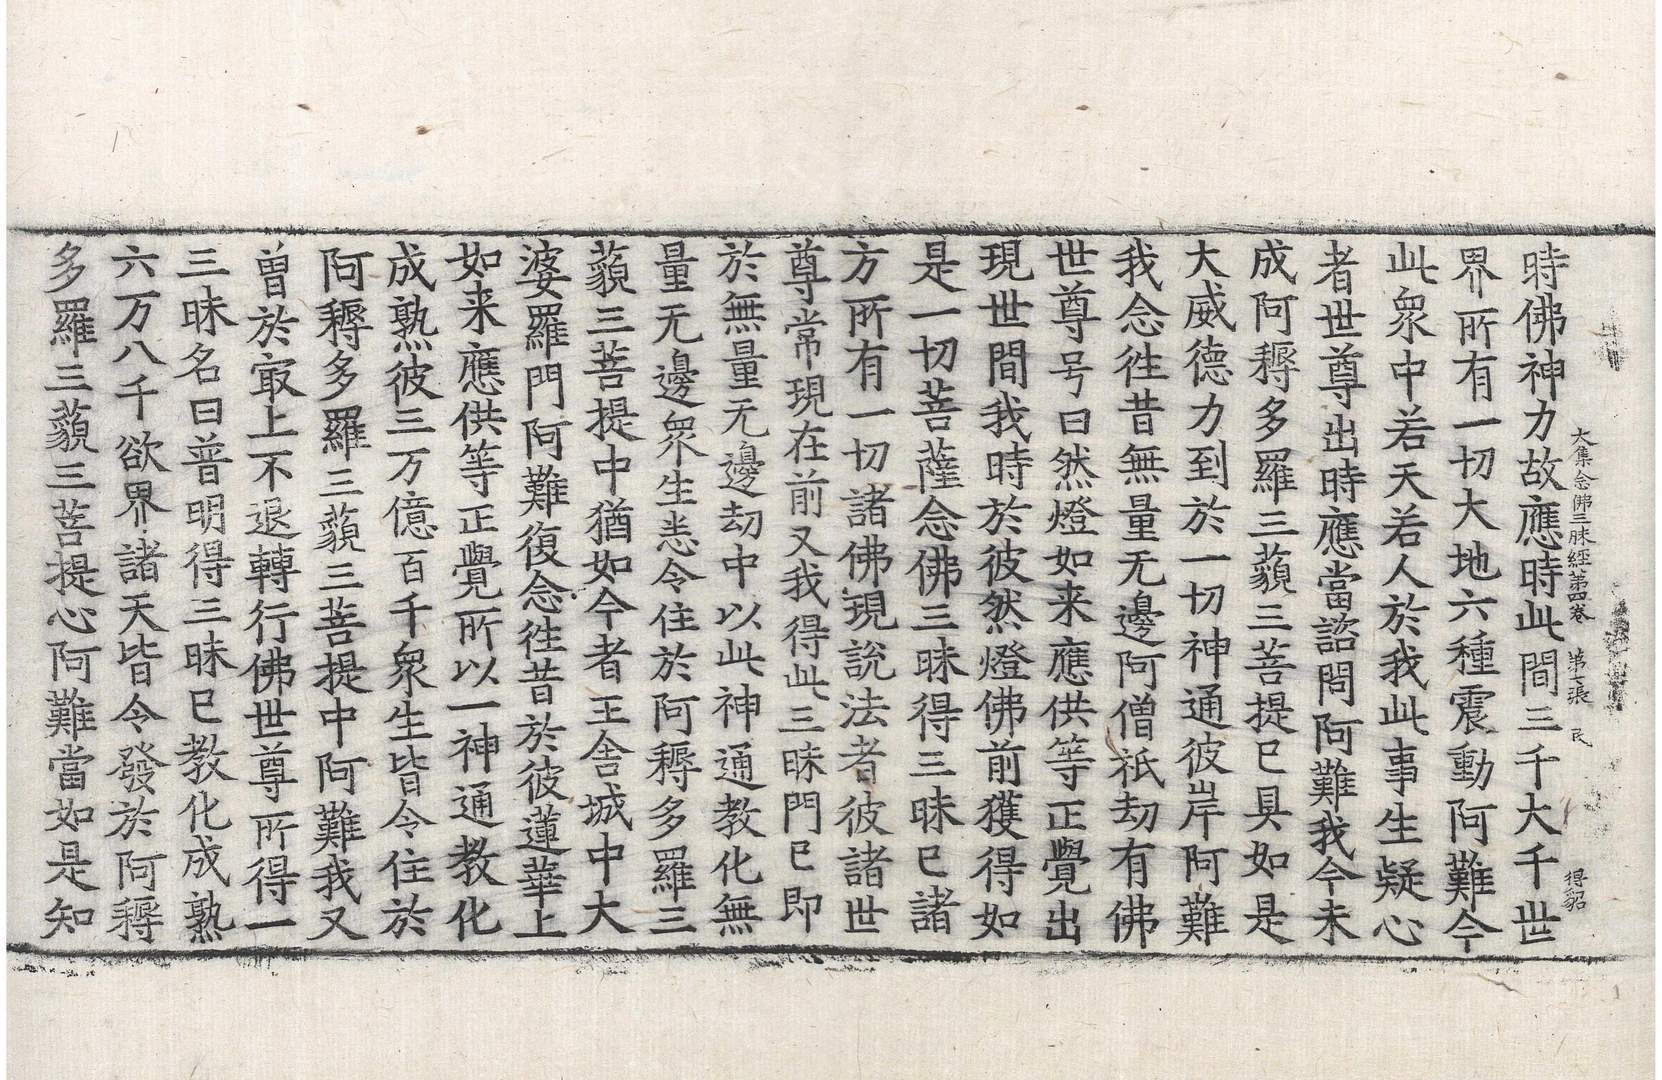 大集念佛三昧經第四卷 第七張 民 得貂
時佛神力故應時此間三千大千世
界所有一切大地六種震動阿難今
此衆中若天若人於我此事生疑心
者世尊出時應當諮問阿難我今未
成阿耨多羅三藐三菩提已具如是
大威德力到於一切神通彼岸阿難
我念徃昔無量无邊阿僧祇劫有佛
世尊号曰然燈如来應供等正覺出
現世間我時於彼然燈佛前獲得如
是一切菩薩念佛三昧得三昧已諸
方所有一切諸佛現說法者彼諸世
尊常現在前又我得此三昧門已即
於無量无邊劫中以此神通教化無
量无邊衆生悉令住於阿耨多羅三
藐三菩提中猶如今者王舍城中大
婆羅門阿難復念徃昔於彼蓮華上
如来應供等正覺所以一神通教化
成熟彼三万億百千衆生皆令住於
阿耨多羅三藐三菩提中阿難我又
曽於冣上不退轉行佛世尊所得一
三昧名曰普明得三昧已教化成熟
六万八千欲界諸天皆令發於阿耨
多羅三藐三菩提心阿難當如是知